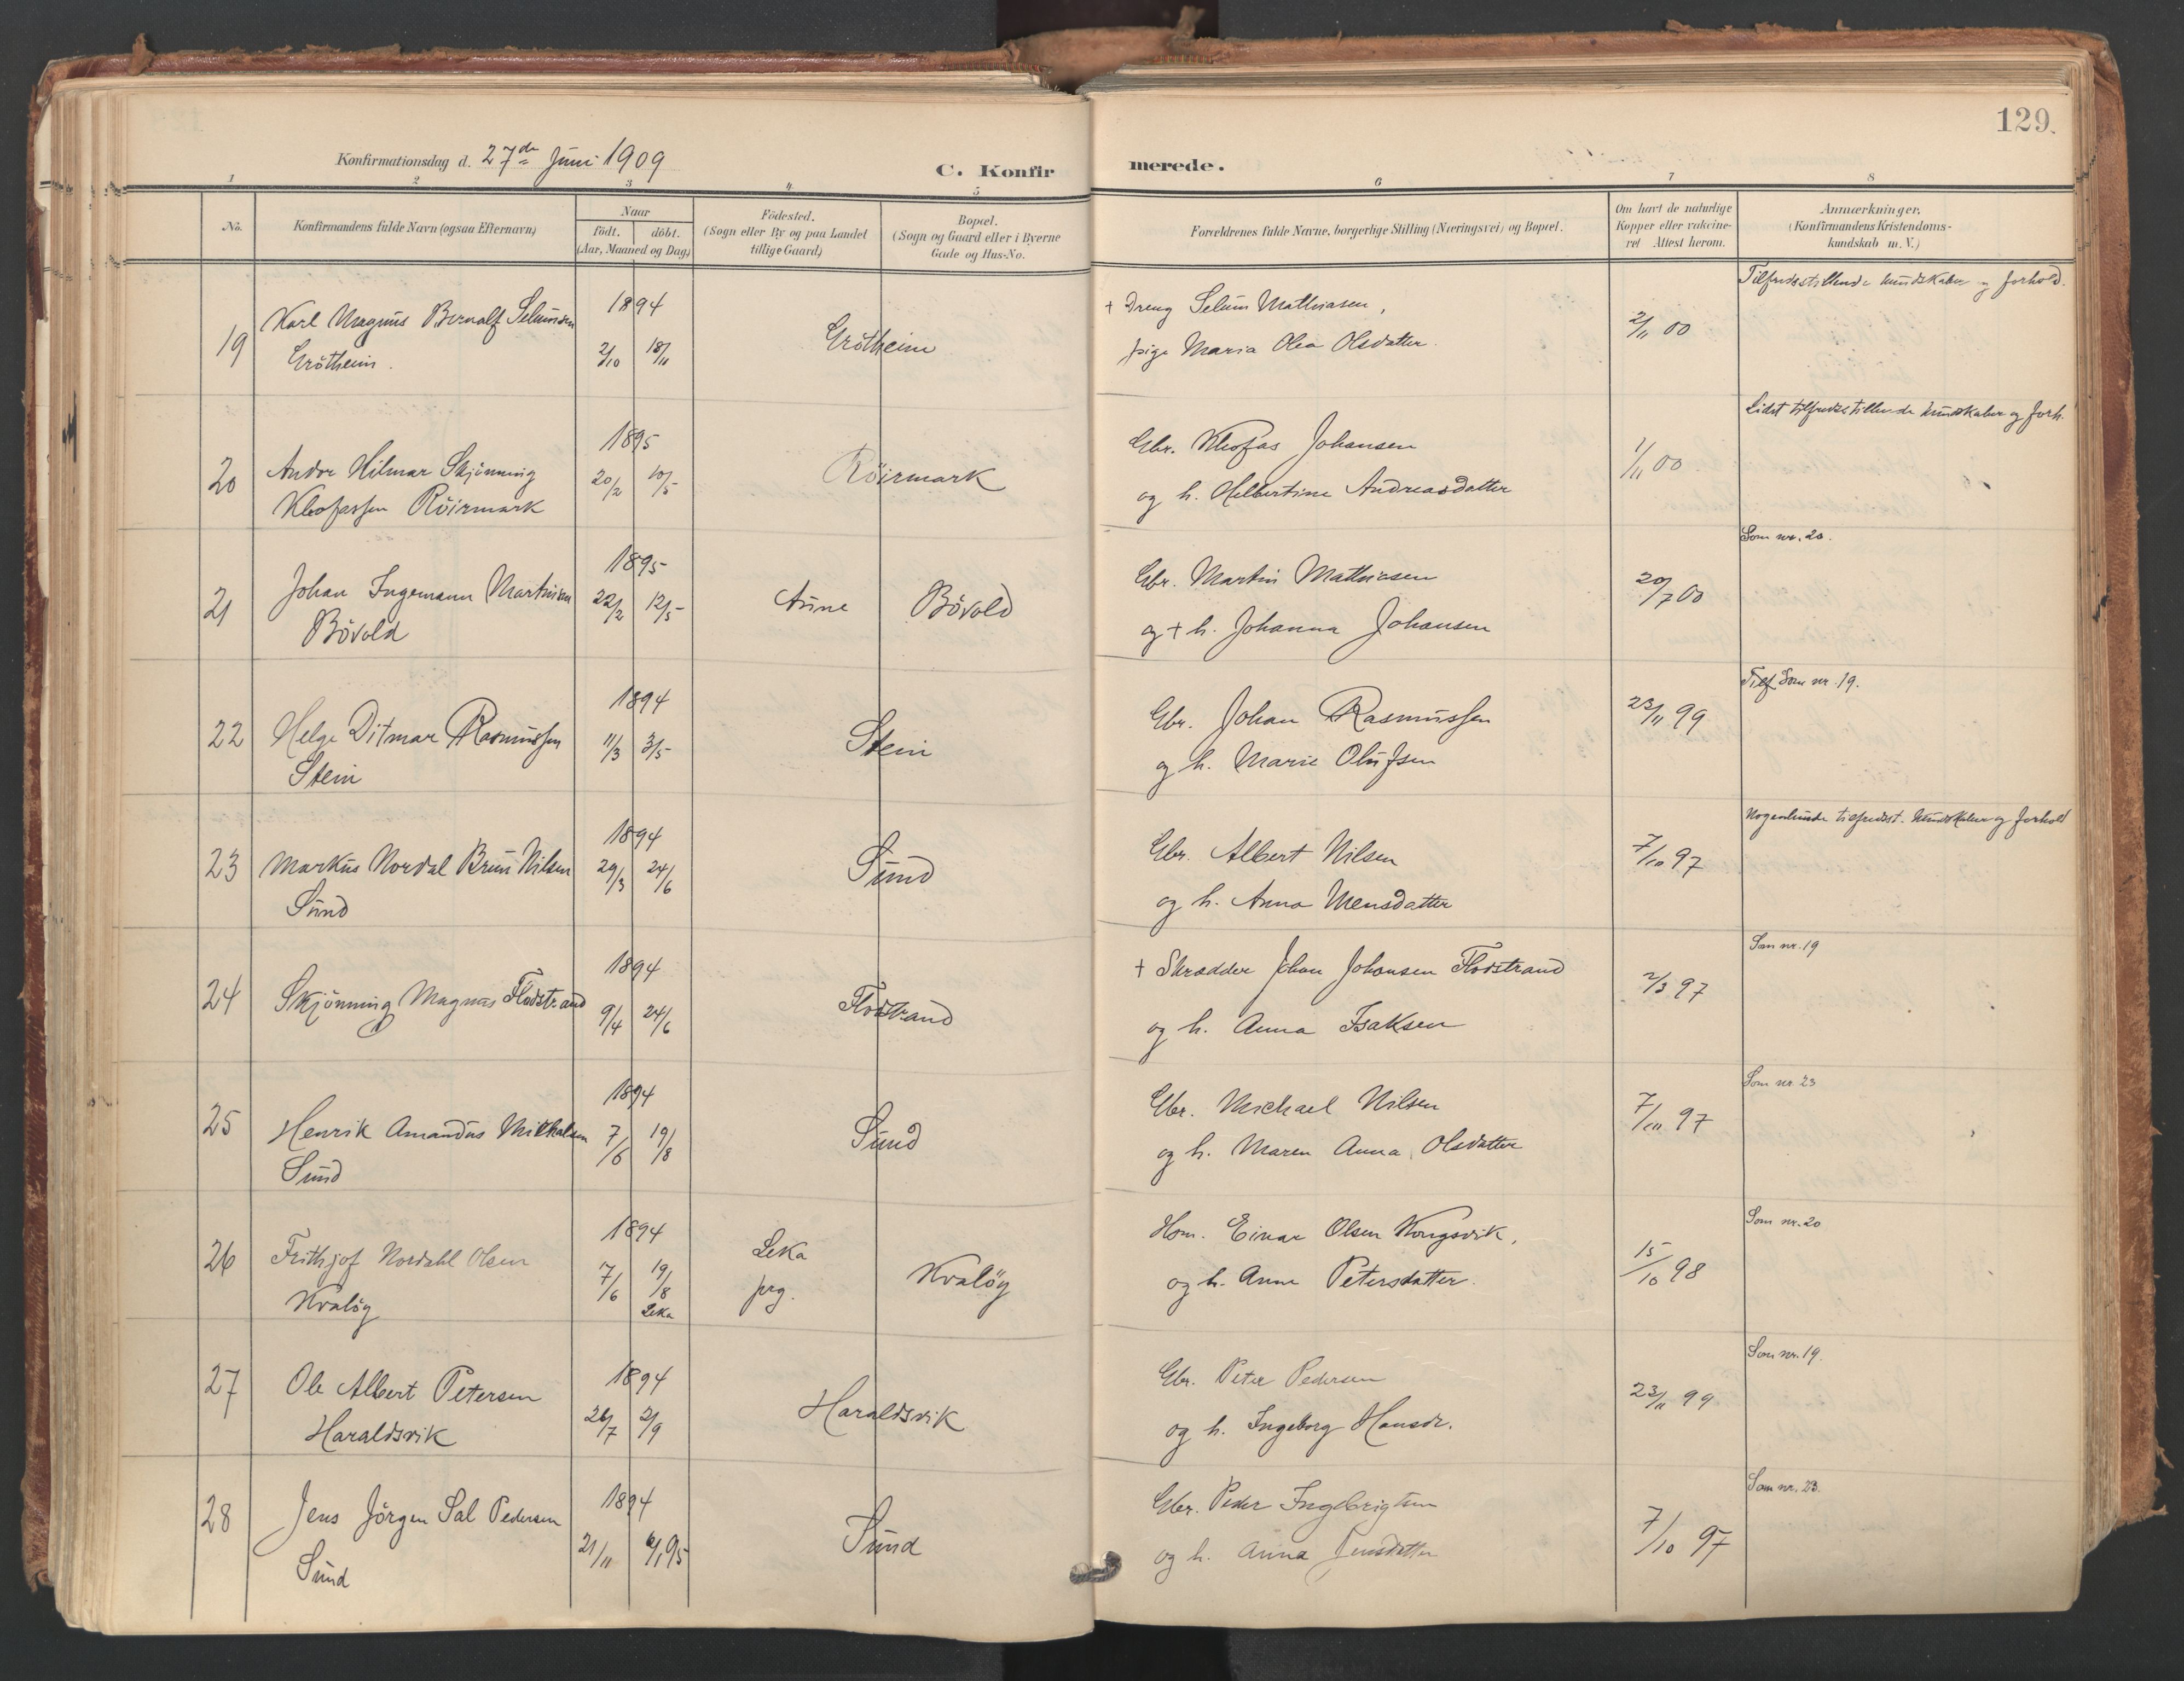 129.
Konfirmationsdag d. 27de Juni 1909
C. Konfirmerede.
1 2 3 4 5 6 7 8
No.
Konfirmandens fulde Navn (ogsaa Efternavn)
Naar
födt. döbt.
(Aar, Maaned og Dag)
Födested.
(Sogn eller By og paa Landet
tillige Gaard)
Bopæl.
(Sogn og Gaard eller i Byerne
Gade og Hus-No.
Forældrenes fulde Navne, borgerlige Stilling (Næringsvei) og Bopæl.
Om havt de naturlige
Kopper eller vakcine-
ret Attest herom.
Anmærkninger.
(Konfirmandens Kristendoms-
kundskab m. V.)
19 Karl Magnus Bernalf Selumsen 1894 + Dreng Selum Mathiasen, 2/11 00 Tilfredsstillende kundskaber og forhold.
Grötheim. 2/10 18/11 Grötheim pige Maria Olea Olsdatter.
20 Andor Hilmar Skjönning 1895 Gbr. Kleofas Johansen 1/11 00 Lidet tilfredsstillende kundskaber og forh.
Kleofassen Röirmark 20/2 10/5 Röirmark og h. Helbertine Andreasdatter
21 Johan Ingemann Martinsen 1895 Gbr. Martin Mathiasen 20/7 00 Som nr. 20.
Bövold 22/2 12/5 Aune Bövold og + h. Johanna Johansen
22 Helge Ditmar Rasmussen 1894 Gbr. Johan Rasmussen 23/11 99 Tilf. Som nr. 19.
Stein 11/3 3/5 Stein og h. Marie Olufsen
23 Markus Nordal Brun Nilsen 1894 Gbr. Albert Nilsen 7/10 97 Nogenlunde tilfredsst. kundskaber og forhold
Sund 29/3 24/6 Sund og h. Anna Mensdatter
24 Skjönning Magnus Flodstrand 1894 + Skrædder Johan Johansen Flodstrand 2/3 97 Som nr. 19
9/4 24/6 Flodstrand og h. Anna Isaksen
25 Henrik Amandus Mikkalsen 1894 Gbr. Michael Nilsen 7/10 97 Som nr. 23
Sund 7/6 19/8 Sund og h. Maren Anna Olsdatter
26 Frithjof Nordahl Olsen 1894 Leka Hom. Einar Olsen Kongsvik, 15/10 98 Som nr. 20
Kvalöy 7/6 19/8 Leka prg. Kvalöy og h. Anne Petersdatter.
27 Ole Albert Petersen 1894 Gbr. Peter Pedersen 23/11 99 Som nr. 19.
Haraldsvik 26/7 2/9 Haraldsvik og h. Ingeborg Hansdr.
28 Jens Jörgen Sal Pedersen 1894 Gbr. Peder Ingebrigtsen 7/10 97 Som nr. 23.
Sund 21/11 6/1 95 Sund og h. Anna Jensdatter